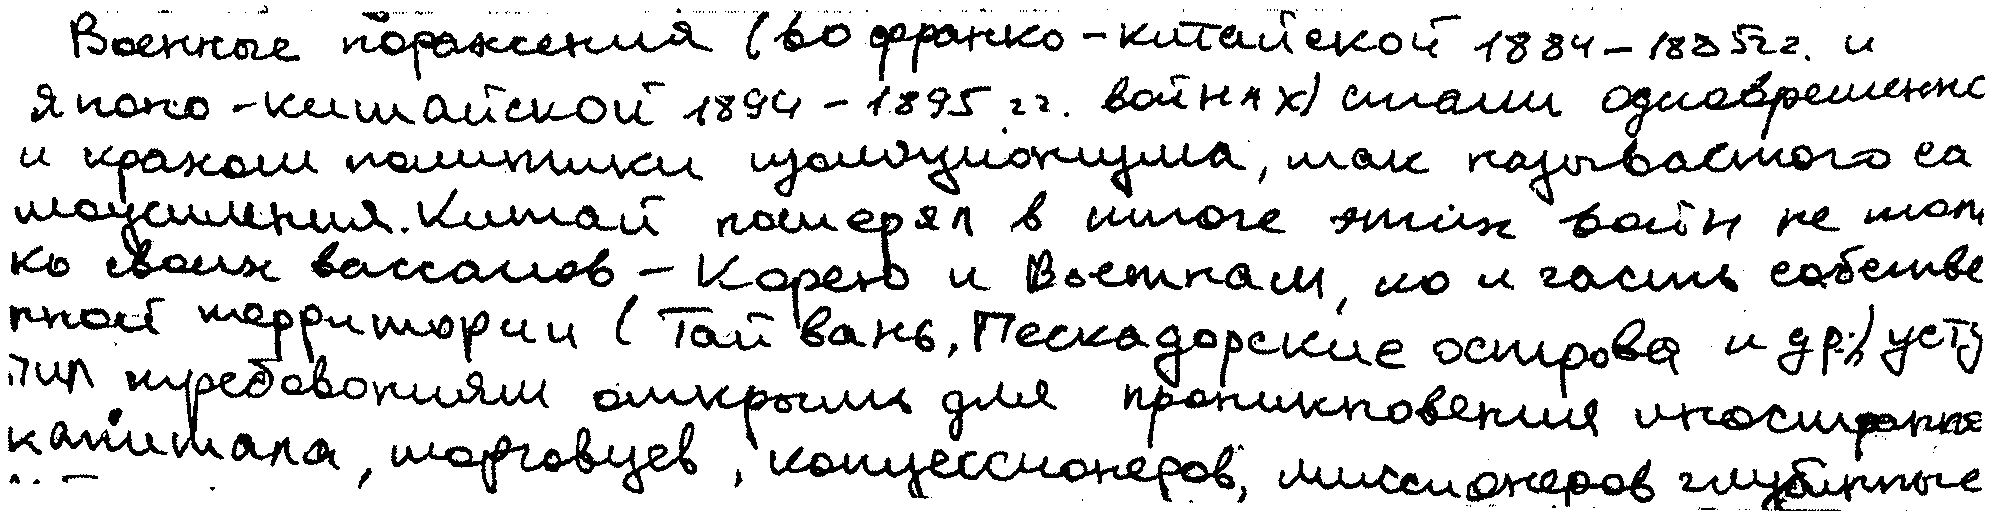 Военные поражения (во франко-китайской 1884-1885 гг. и
японо-китайской 1894-1895 гг. войнах) стали одновременно
и крахом политики изоляционизма, так называемого са
моусиления. Китай потерял в итоге этих войн не толь
ко своих вассалов - Корею и Вьетнам, но и часть собстве
нной территории (Тайвань, Пескадорские острова и др.) усту
пил требованиям открыть для проникновения иностранно
капитала, торговцев, концессионеров, миссионеров глубинные